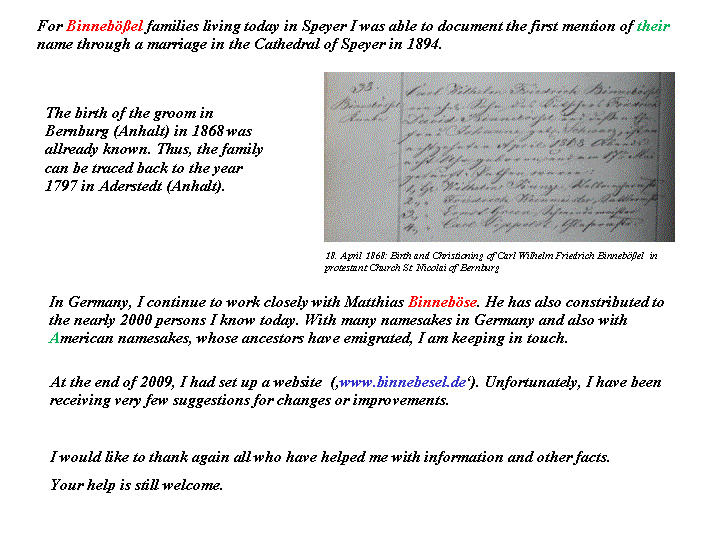 For Binnebößel families living today in Speyer I was able to document the first mention of their
name through a marriage in the Cathedral of Speyer in 1894.
The birth of the groom in
Bernburg (Anhalt) in 1868 was
allready known. Thus, the family
can be traced back to the year
1797 in Aderstedt (Anhalt).
Carl Wilhelm Friedrich Binnebößel
18. April 1868: Birth and Christioning of Carl Wilhelm Friedrich Binnebößel in
protestant Church St. Nicolai of Bernburg
In Germany, I continue to work closely with Matthias Binneböse. He has also constributed to
the nearly 2000 persons I know today. With many namesakes in Germany and also with
American namesakes, whose ancestors have emigrated, I am keeping in touch.
At the end of 2009, I had set up a website (‚www.binnebesel.de‘). Unfortunately, I have been
receiving very few suggestions for changes or improvements.
I would like to thank again all who have helped me with information and other facts.
Your help is still welcome.